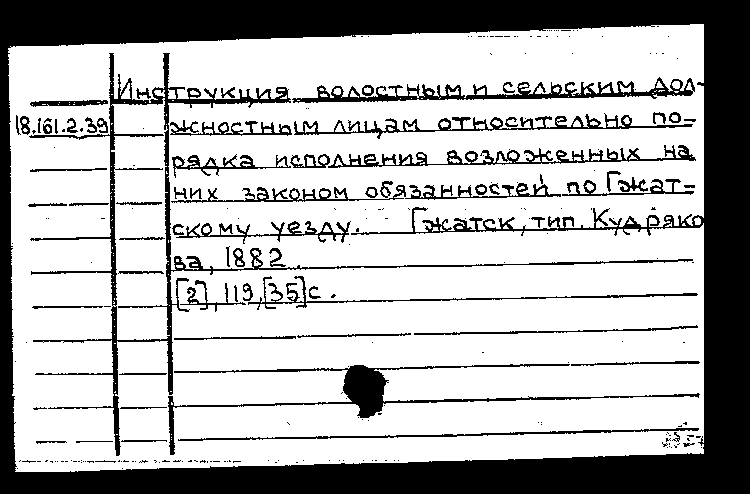 Инструкция волостным и сельским дол-
18.161.2.39 жностным лицам относительно по=
рядка исполнения возложенных на
них законом обязанностей по Гжат=
скому уезду. Гжатск, тип. Кудряко
ва, 1882.
[2], 119, [35] с.